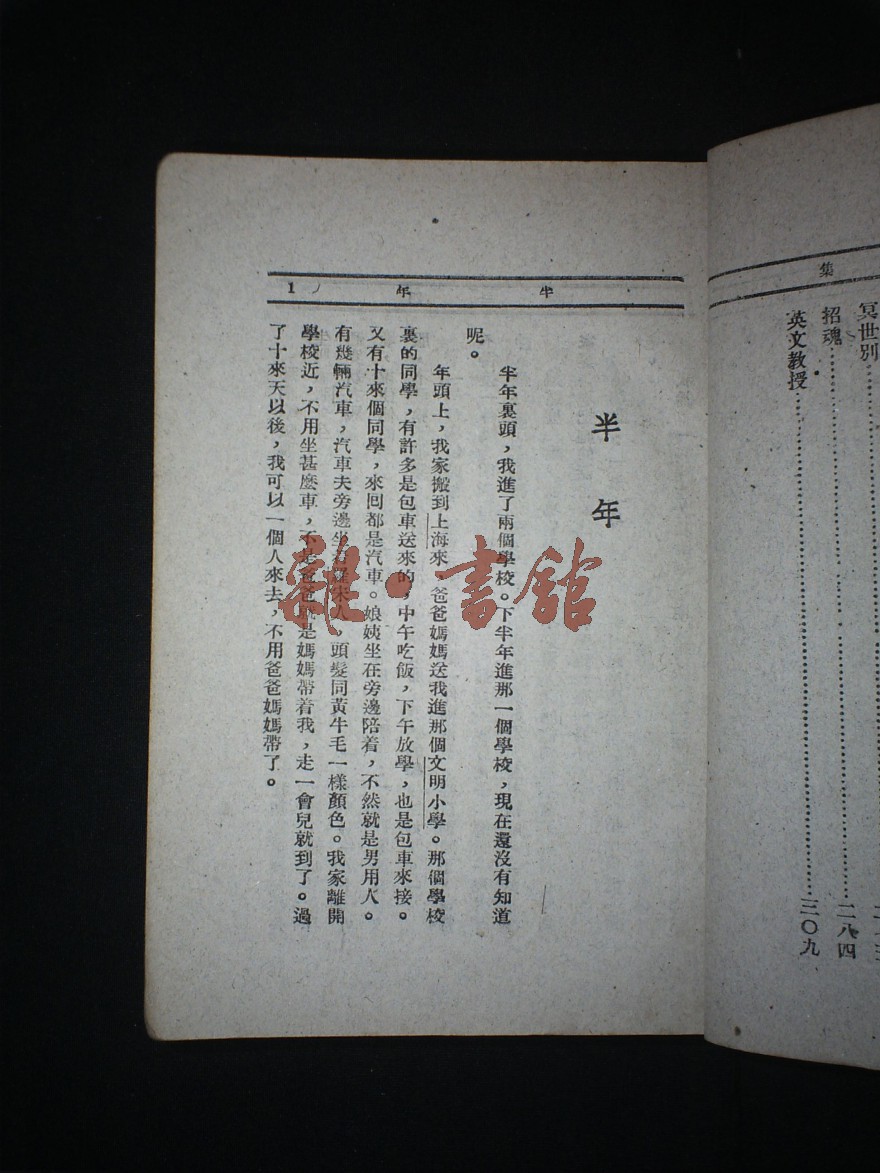 集
冥世別
招魂……………………二八四
英文教授……………………三〇九
半年 1
半年
半年裏頭，我進了兩個學校。下半年進那一個學校，現在還沒有知道
呢。
年頭上，我家搬到上海來，爸爸媽媽送我進那個文明小學。那個學校
裏的同學，有許多是包車送來的，中午吃飯，下午放學，也是包車來接。
又有十來個同學，來囘都是汽車。娘姨坐在旁邊陪着，不然就是男用人。
有幾輛汽車，汽車夫旁邊坐着羅宋人，頭髮同黃牛毛一樣顏色。我家離開
學校近，不用坐甚麼車，不是爸爸就是媽媽帶着我，走一會兒就到了。過
了十來天以後，我可以一個人來去，不用爸爸媽媽帶了。
雜·書館